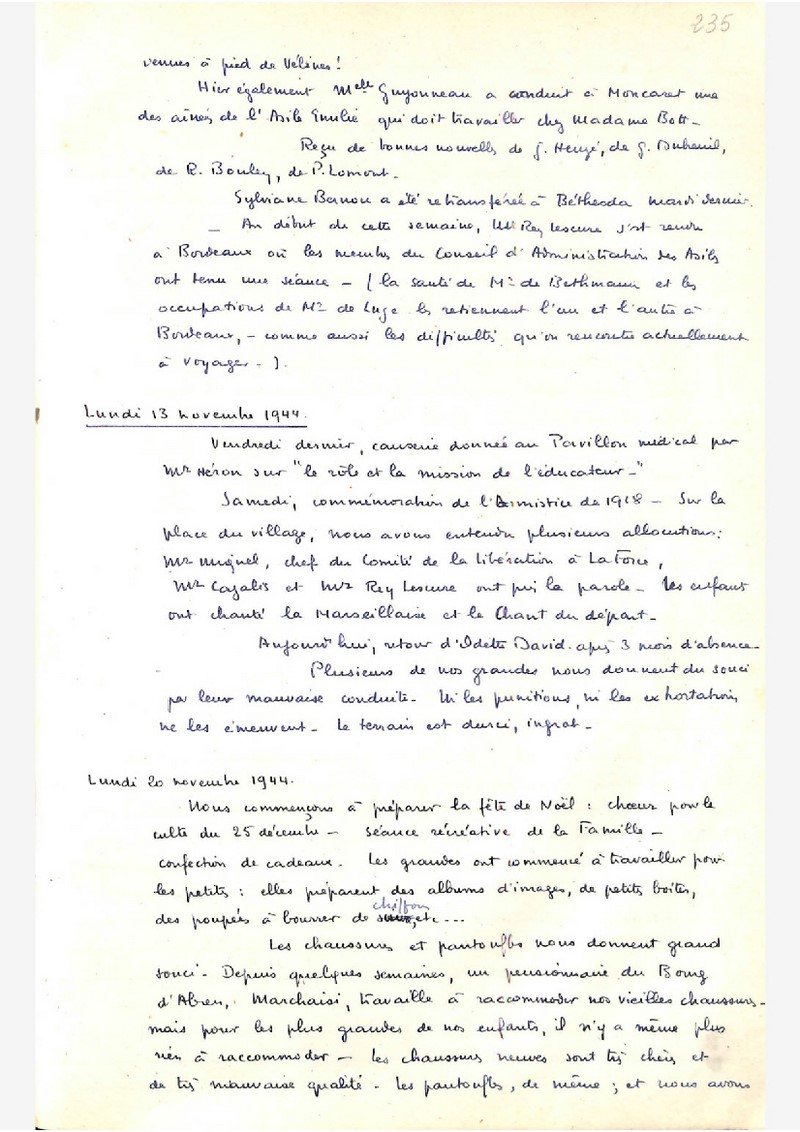 235
venues à pied de Vélines !
Hier également Melle Guyonneau a conduit à Moncaret une
des aînées de l'Asile Emilie qui doit travailler chez Madame Bott -
Reçu de bonnes nouvelles de J. Henzé, de G. Dubreuil,
de R. Bouley, de P. Lomont -
Sylviane Banon a été retransférée à Béthesda mardi dernier.
_ Au début de cette semaine, Mr Rey Lescure s'est rendu
à Bordeaux où les membres du Conseil d'Administration des Asiles
ont tenu une séance - ( la santé de Mr de Bethmann et les
occupations de Mr de Luze les retiennent l'un et l'autre à
Bordeaux, - comme aussi les difficultés qu'on rencontre actuellement
à voyager - ).
Lundi 13 novembre 1944.
Vendredi dernier, causerie donnée au Pavillon médical par
Mr Héron sur "le rôle et la mission de l'éducateur -"
Samedi, commémoration de l'Armistice de 1918 - Sur la
place du village, nous avons entendu plusieurs allocutions :
Mr Miquel, chef du Comité de la libération à La Force,
Mr Cazalis et Mr Rey Lescure ont pris la parole - Les enfants
ont chanté la Marseillaise et le Chant du départ -
Aujourd'hui, retour d'Odette David après 3 mois d'absence -
Plusieurs de nos grandes nous donnent du souci
par leur mauvaise conduite - Ni les punitions, ni les exhortations
ne les émeuvent - Le terrain est durci, ingrat -
Lundi 20 novembre 1944.
Nous commençons à préparer la fête de Noël : chœur pour le
culte du 25 décembre - séance récréative de la Famille -
confection de cadeaux. Les grandes ont commencé à travailler pour
les petits : elles préparent des albums d'images, de petites boîtes,
chiffon
des poupées à bourrer de etc ---
Les chaussures et pantoufles nous donnent grand
souci - Depuis quelques semaines, un pensionnaire du Bourg
d'Abren, Marchaisi, travaille à raccommoder nos vieilles chaussures -
mais pour les plus grandes de nos enfants, il n'y a même plus
rien à raccommoder - les chaussures neuves sont très chères et
de très mauvaise qualité - les pantoufles, de même ; et nous avons